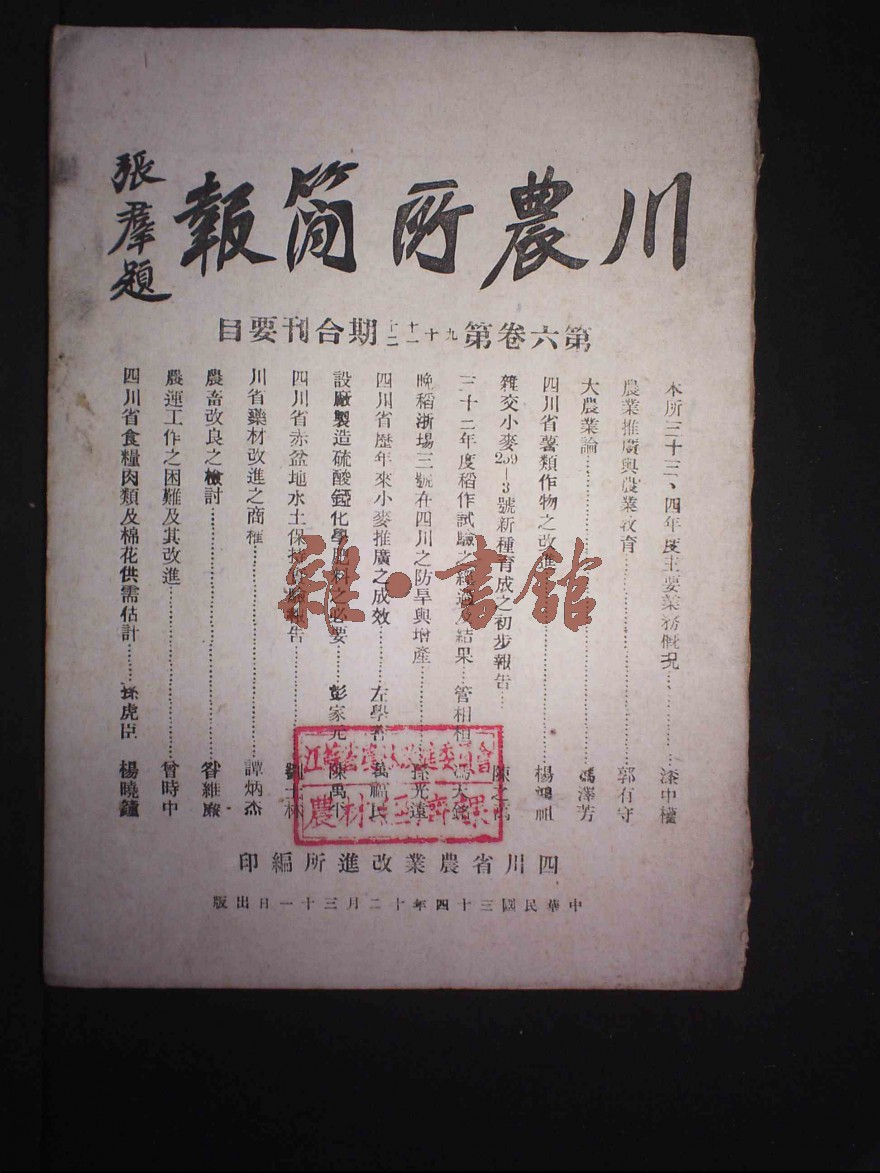 川農所簡報
張羣題
第六卷第九十十一十二期合刊要目
本所三十三、四年度主要業務概況……漆中權
農業推廣與農業教育……郭有守
大農業論……馮澤芳
四川省薯類作物之改進……楊鴻祖
雜交小麥259—3號新種育成之初步報告……陳之萬
三十二年度稻作試驗之經過及結果……管相桓 馮天銘
晚稻浙場三號在四川之防旱與增產……孫光遠
四川省歷年來小麥推廣之成效……左學孝 萬福民
設廠製造硫酸錏化學肥料之必要……彭家元 陳禹平
四川省赤盆地水土保持試驗報告……劉士林
川省藥材改進之商榷……譚炳杰
農畜改良之檢討……昝維廉
農運工作之困難及其改進……曾時中
四川省食糧肉類及棉花供需估計……孫虎臣 楊曉鐘
四川省農業改進所編印
中華民國三十四年十二月三十一日出版
農村經濟課
雜·書館